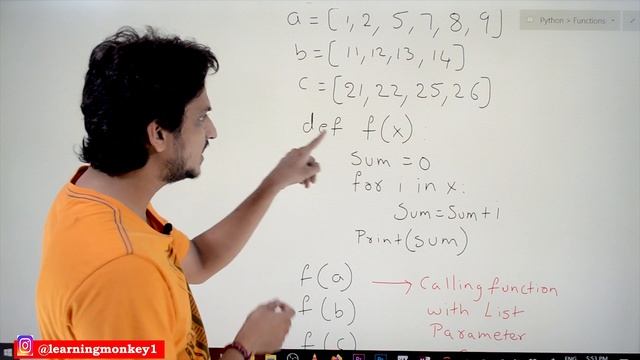 a = [1, 2, 5, 7, 8, 9]
Python > Functions
b = [11, 12, 13, 14]
c = [21, 22, 25, 26]
def f(x):
Sum = 0
for i in x:
Sum = Sum + i
Print(Sum)
f(a) → Calling function
f(b) with List
f(c) Parameter
@learningmonkey1
ENG 5:51 PM